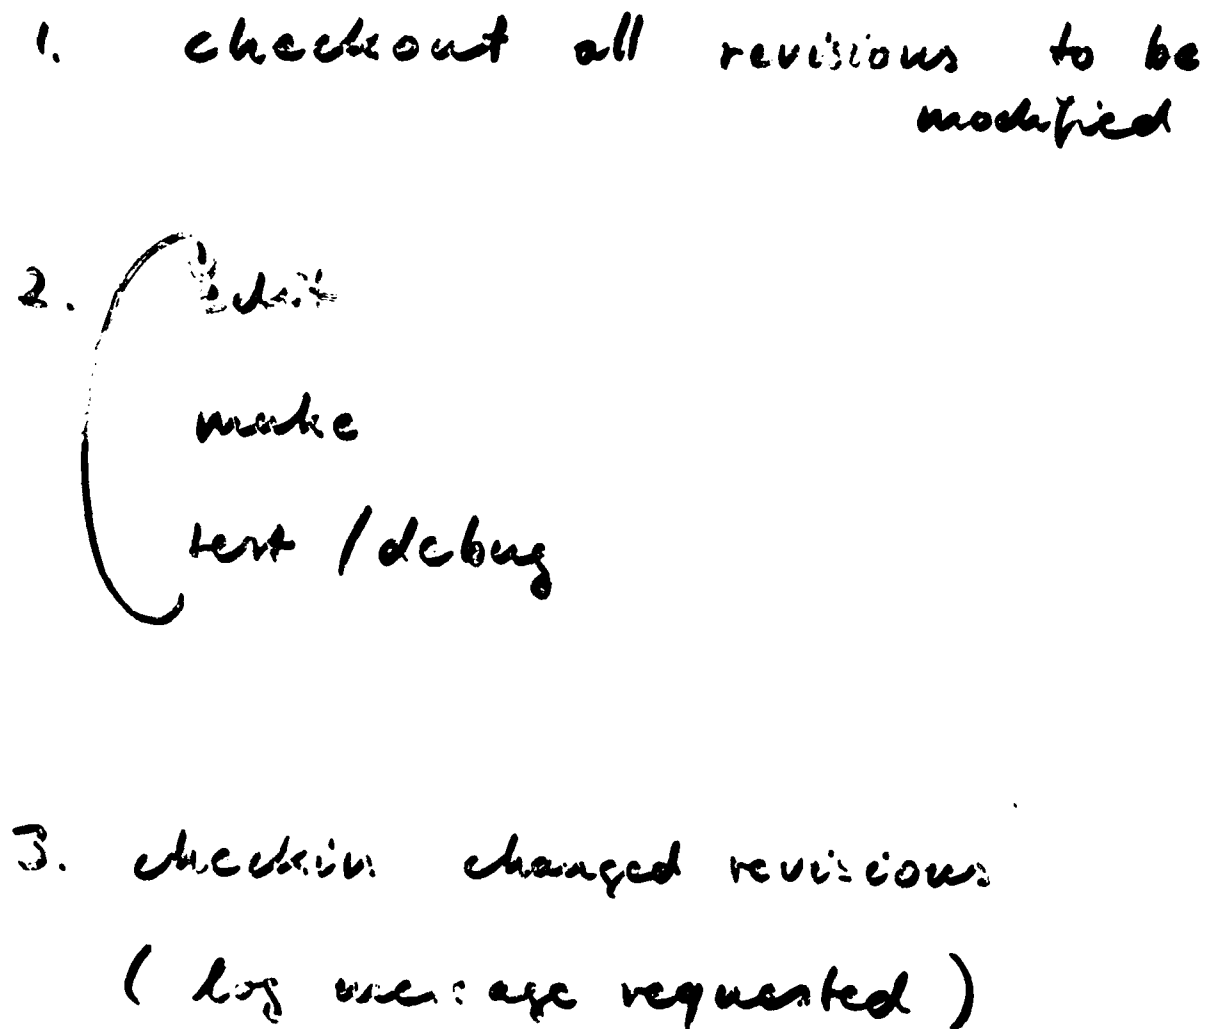 1. checkout all revisions to be
modified
2. edit
make
test / debug
3. checkin changed revisions
( log message requested )